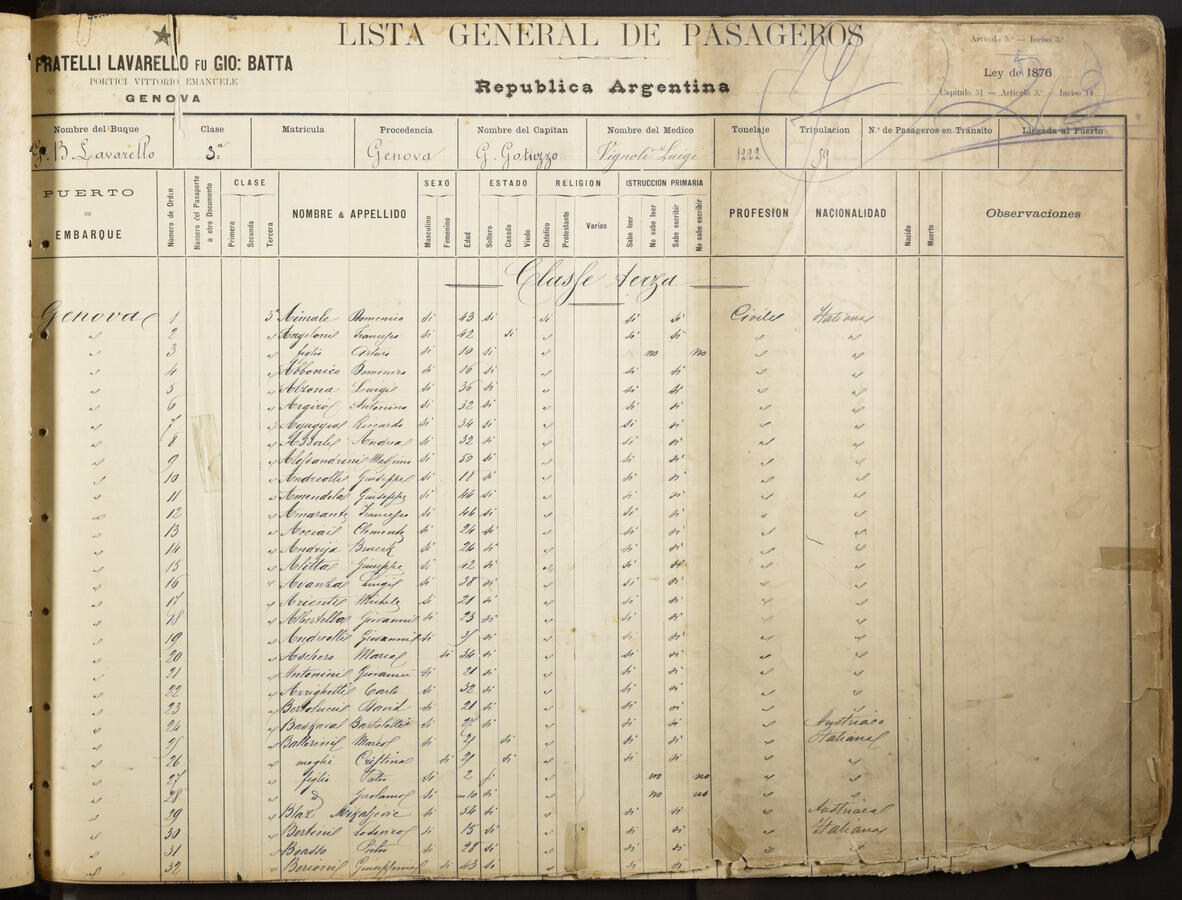 LISTA GENERAL DE PASAGEROS
Articulo 5.º — Inciso 3.º
FRATELLI LAVARELLO FU GIO: BATTA
PORTICI VITTORIO EMANUELE
GENOVA
Republica Argentina
Ley de 1876
Capitulo 51 — Articulo 3.º — Inciso 14
Nombre del Buque Clase Matricula Procedencia Nombre del Capitan Nombre del Medico Tonelaje Tripulacion N.º de Pasageros en Tránsito Llegada al Puerto
B. Lavarello 3.ª Genova G. Gotuzzo Vignoli Luigi 1222 59
PUERTO DE EMBARQUE Número de Orden Número del Pasaporte u otro Documento CLASE Primera Segunda Tercera NOMBRE & APPELLIDO SEXO Masculino Femenino Edad ESTADO Soltero Casado Viudo RELIGION Catolico Protestante Varios ISTRUCCION PRIMARIA Sabe leer No sabe leer Sabe escribir No sabe escribir PROFESION NACIONALIDAD Nacido Muerto Observaciones
Classe terza
Genova 1 3ª Aimale Domenico si 43 si si si si Civile Italiana
" 2 " Angeloni Francesco si 42 si " si si " "
" 3 " figlio Arturo si 10 si " no no " "
" 4 " Abbonico Domenico si 16 si " si si " "
" 5 " Alzona Luigi si 36 si " si si " "
" 6 " Argirò Antonino si 32 si " si si " "
" 7 " Riccardo si 34 si " si si " "
" 8 " Andrea si 32 si " si si " "
" 9 " Alessandrini Massimo si 50 si " si si " "
" 10 " Andreolli Giuseppe si 18 si " si si " "
" 11 " Amendola Giuseppe si 44 si " si si " "
" 12 " Amarante Francesco si 44 si " si si " "
" 13 " Acciail Clemente si 24 si " si si " "
" 14 " Andrija si 26 si " si si " "
" 15 " Alitta Giuseppe si 12 si " si si " "
" 16 " Avanzal Luigi si 38 si " si si " "
" 17 " Ariente Michele si 21 si " si si " "
" 18 " Albertella Giovanni si 23 si " si si " "
" 19 " Andreolli Giovanni si 35 si " si si " "
" 20 " Aschero Maria si 34 si " si si " "
" 21 " Antonini Giovanni si 21 si " si si " "
" 22 " Arrighetti Carlo si 32 si " si si " "
" 23 " Bertolucci David si 21 si " si si " "
" 24 " Bartolotti si 25 si " si si " Austriaco
" 25 " Ballerini Marco si 25 si " si si " Italiana
" 26 " moglie Cristina si 21 si " si si " "
" 27 " figlio Pietro si 2 si " no no " "
" 28 " d Girolamo si " no no " "
" 29 " Blaz si 34 si " si si " Austriaca
" 30 " Bertini Lodovico si 15 si " si si " Italiana
" 31 " Boasso Pietro si 28 si " si si " "
" 32 " Berioni si 43 si " si si " "